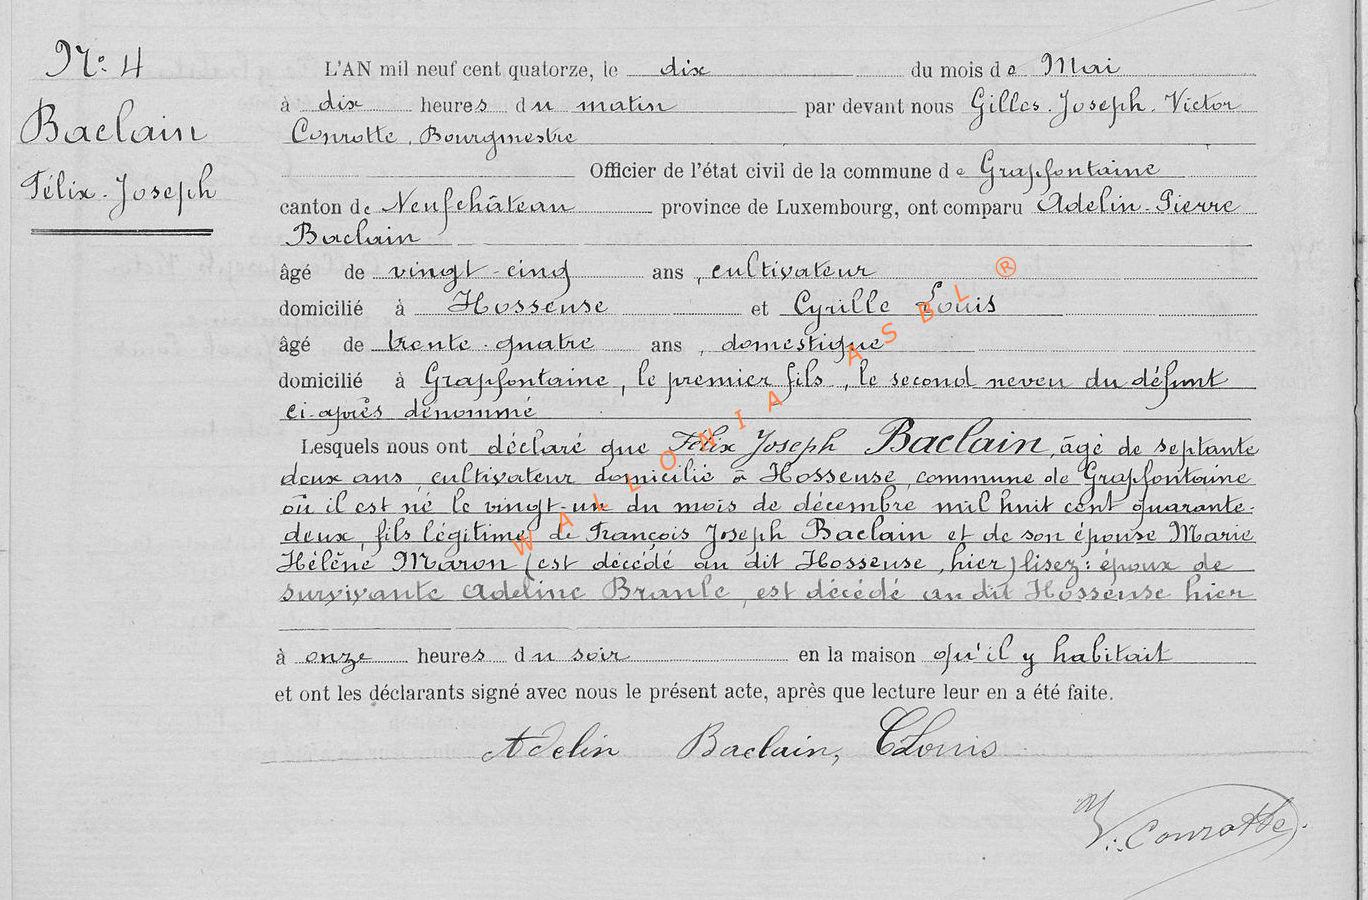 N° 4
Baclain
Félix-Joseph
L'AN mil neuf cent quatorze, le dix du mois de Mai
à dix heures du matin par devant nous Gilles-Joseph-Victor
Conrotte, Bourgmestre
Officier de l'état civil de la commune de Grapfontaine
canton de Neufchâteau province de Luxembourg, ont comparu Adelin-Pierre
Baclain
âgé de vingt-cinq ans, cultivateur
domicilié à Hosseuse et Cyrille Louis
âgé de trente-quatre ans, domestique
domicilié à Grapfontaine, le premier fils, le second neveu du défunt
ci-après dénommé
Lesquels nous ont déclaré que Félix Joseph Baclain, âgé de septante
deux ans, cultivateur domicilié à Hosseuse, commune de Grapfontaine
où il est né le vingt-un du mois de décembre mil huit cent quarante-
deux, fils légitime de François Joseph Baclain et de son épouse Marie
Hélène Maron (est décédé au dit Hosseuse, hier) lisez: époux de
survivante Adeline Branle, est décédé au dit Hosseuse hier
à onze heures du soir en la maison qu'il y habitait
et ont les déclarants signé avec nous le présent acte, après que lecture leur en a été faite.
Adelin Baclain, CLouis
V. Conrotte
WALLONIA ASBL ®